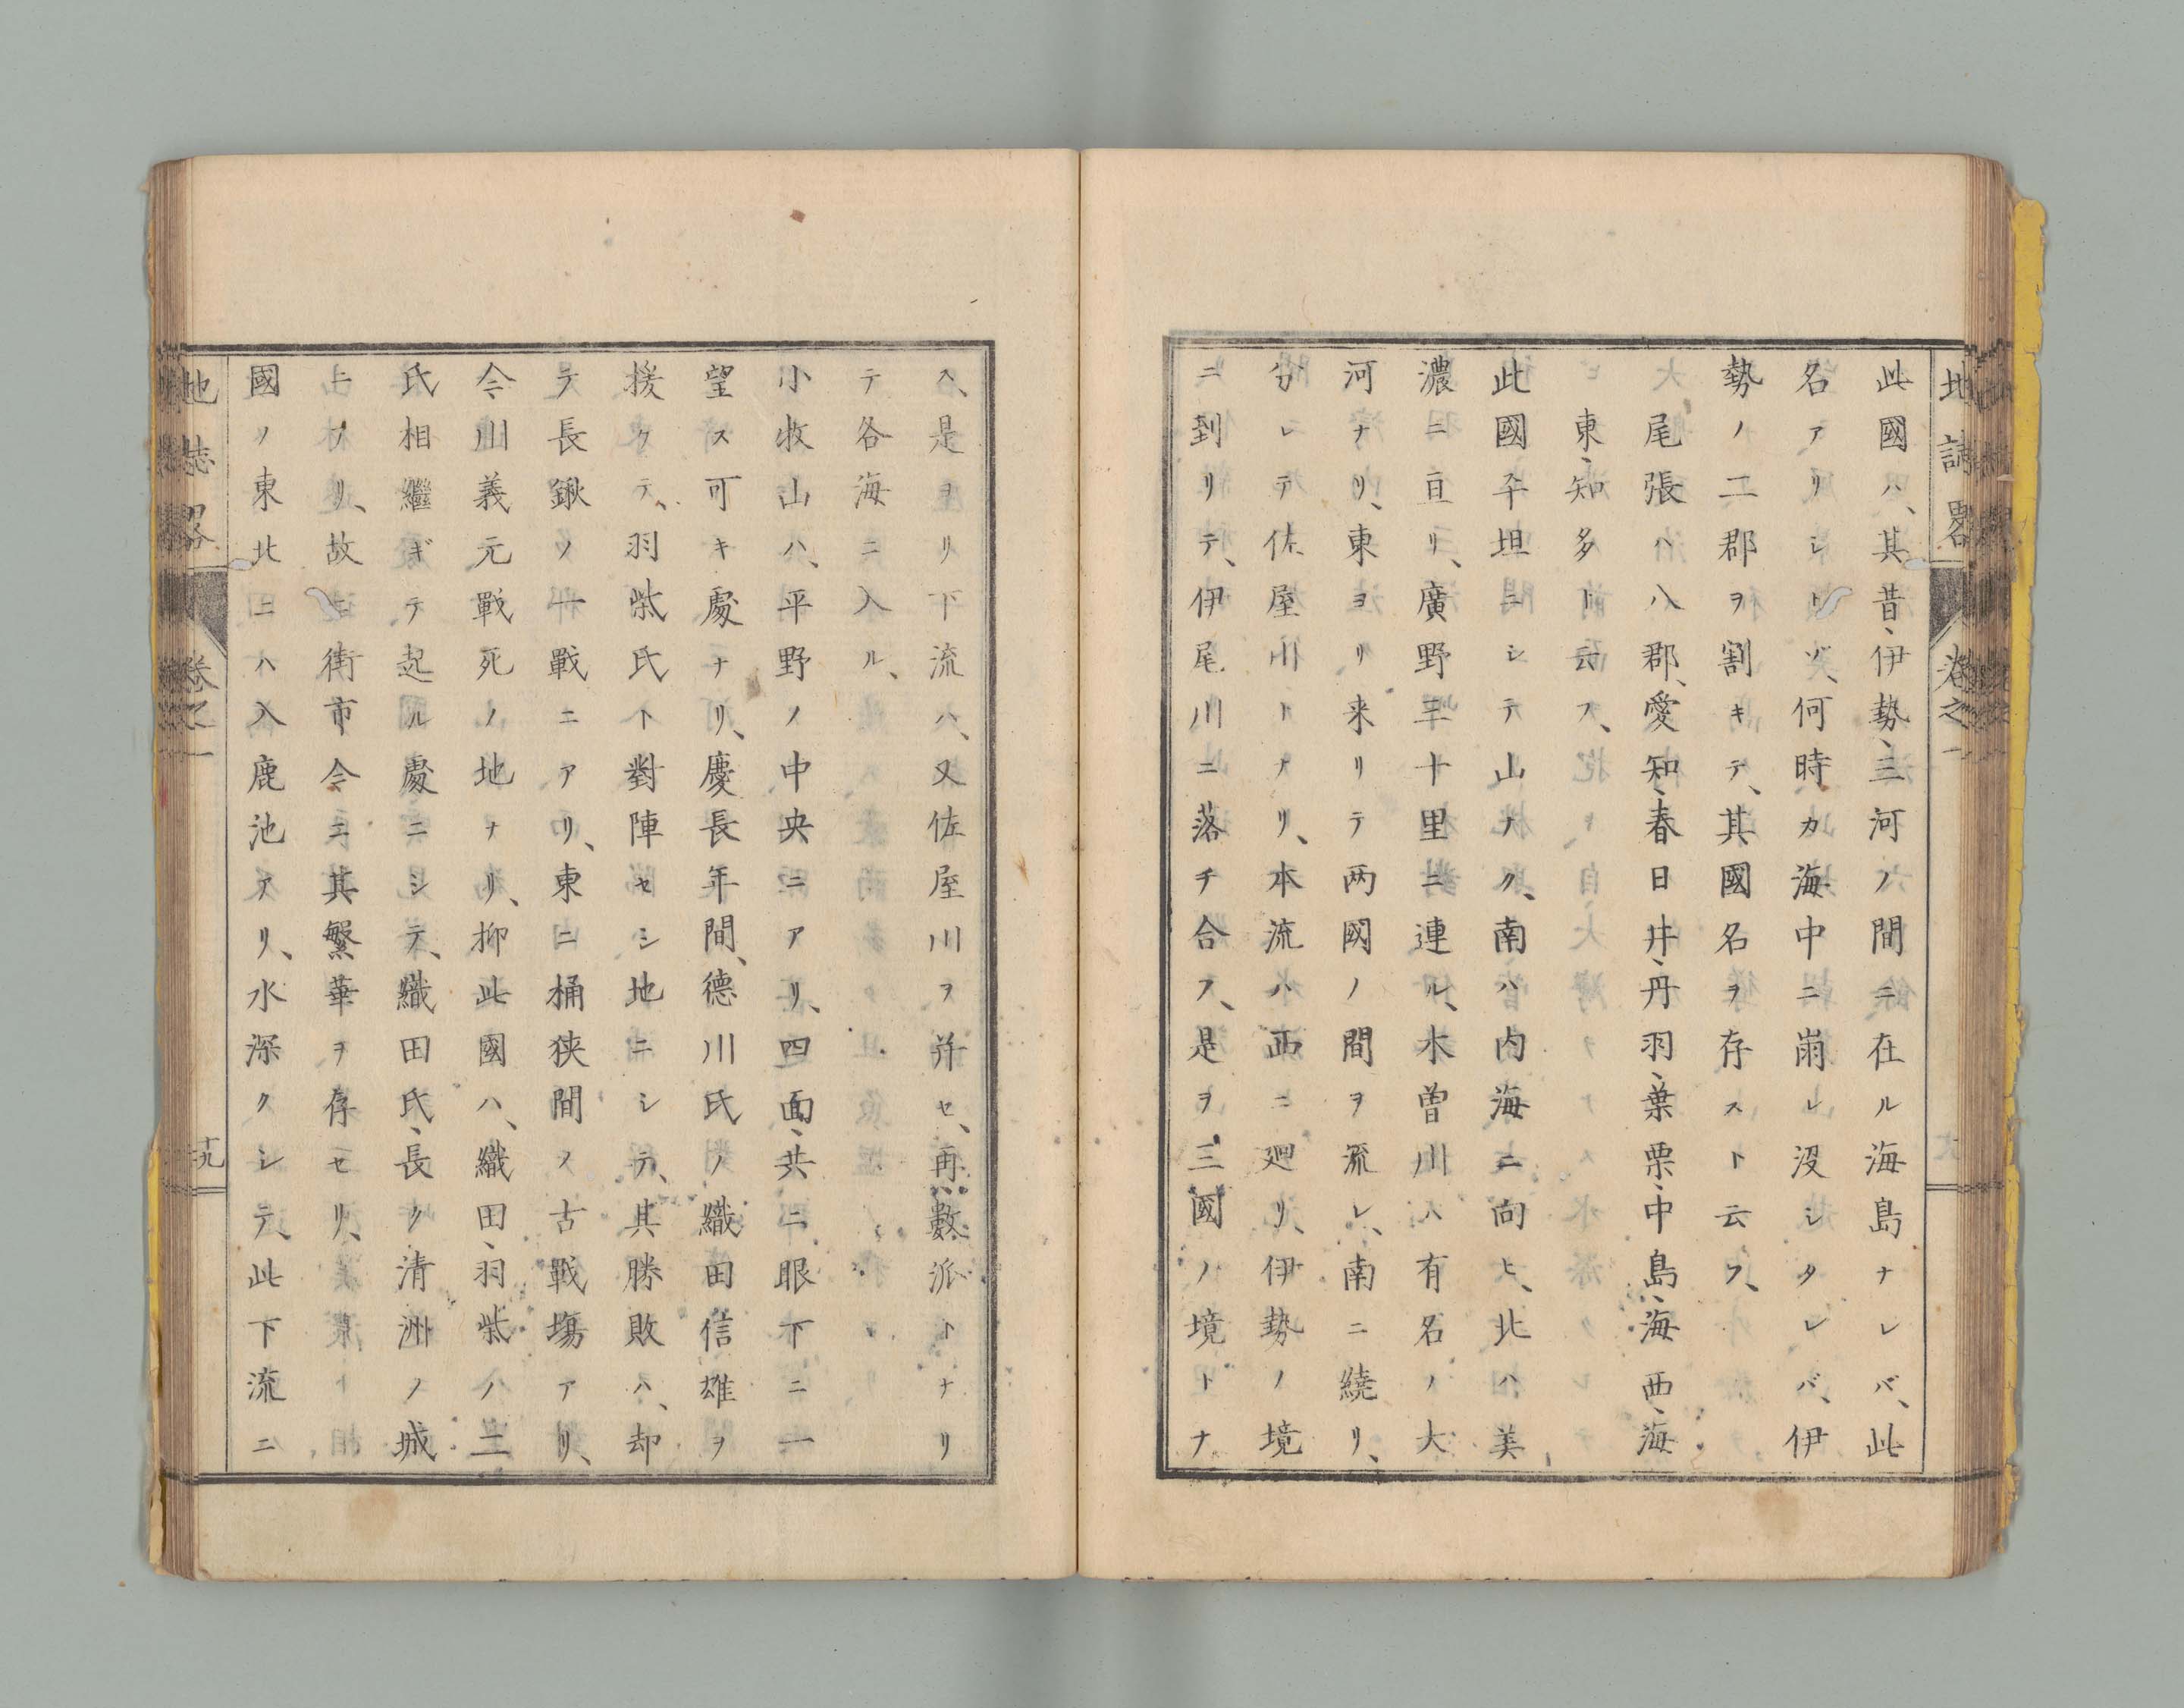 地誌畧 卷之一
此國ハ、其昔、伊勢、三河ノ間ニ在ル海島ナレバ、此
名アリシト、何時カ海中ニ崩レ没シタレバ、伊
勢ノ二郡ヲ割キテ、其國名ヲ存スト云フ、
尾張ハ八郡、愛知、春日井、丹羽、葉栗、中島、海西、海
東、知多ト云ス、
此國平坦ニシテ山ナク、南ハ内海ニ向ヒ、北ハ美
濃ニ亘リ、廣野三十里ニ連ル、木曽川ハ有名ノ大
河ナリ、東ヨリ来リテ两國ノ間ヲ流レ、南ニ繞リ、
分レテ佐屋川トナリ、本流ハ西ニ廻リ、伊勢ノ境
ニ到リテ、伊尾川ニ落チ合フ、是ヲ三國ノ境トナ
ス、是ヨリ下流ハ、又佐屋川ヲ并セ、再數派トナリ
テ各海ニ入ル、
小牧山ハ、平野ノ中央ニアリ、四面、共ニ眼下ニ一
望ス可キ處ナリ、慶長年間、德川氏ノ織田信雄ヲ
援ケテ、羽柴氏ト對陣セシ地ニシテ、其勝敗ハ、却
テ長鍬ノ一戰ニアリ、東ニ桶狹間ノ古戰塲アリ、
今川義元戰死ノ地ナリ、抑此國ハ、織田、羽柴ノ二
氏相繼ギテ起ル處ニシテ、織田氏、長ク清洲ノ城
ニアリ、故ニ街市今ニ其繁華ヲ存セリ、
國ノ東北ニハ入鹿池アリ、水深クシテ、此下流ニ
地誌畧 卷之一 十九